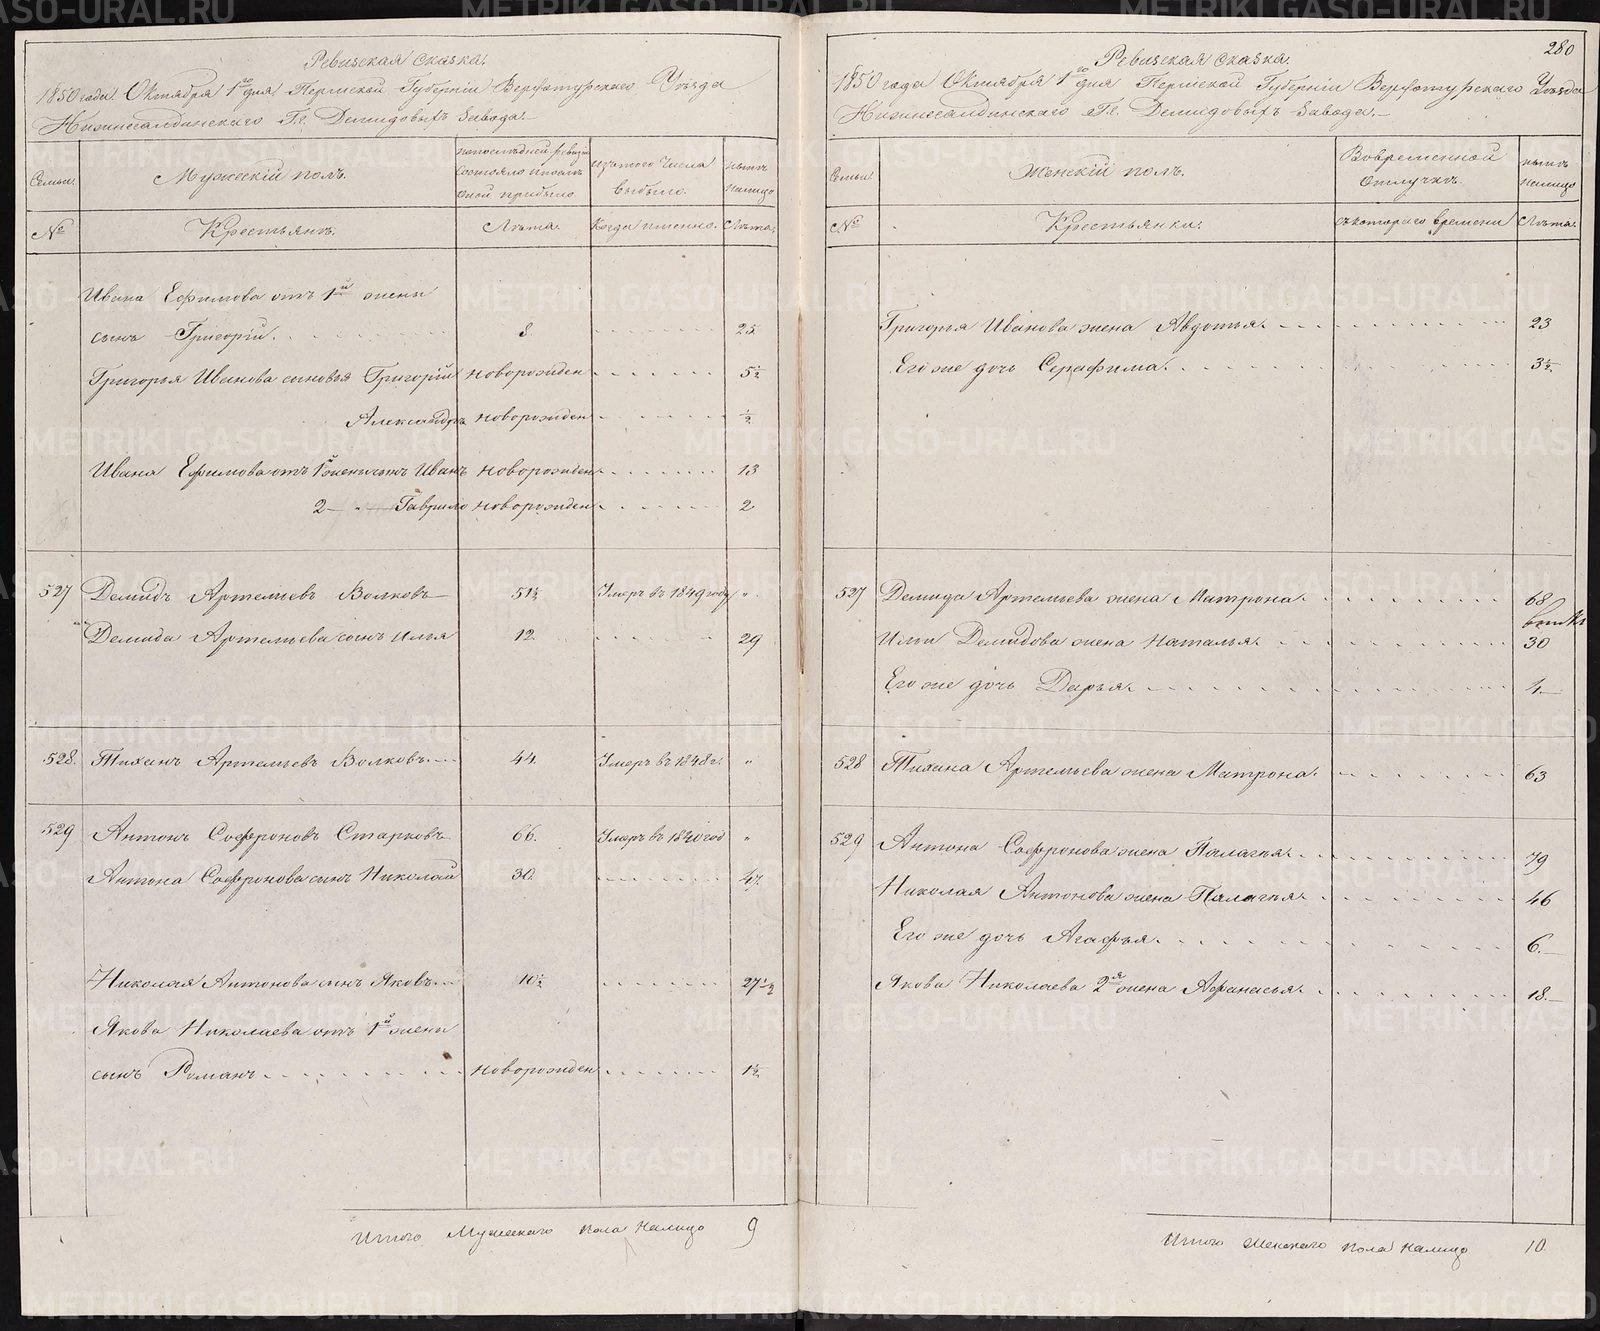 Ревизская сказка.
1850 года Октября 1го дня Пермской Губернiи Верхотурскаго Уѣзда
Нижнесалдинскаго Г.г. Демидовыхъ Завода.
Семьи. Мужескiй полъ. изъ того числа выбыло. нынѣ налицо
№ Крестьянъ. Лѣта. Когда именно. Лѣта.
Ивана Ефимова отъ 1й жены
сынъ Григорiй. 8 25
Григорья Иванова сыновья Григорiй новорожден 5½
Александръ новорожден ½
Ивана Ефимова отъ 1й жены сынъ Иванъ новорожден 13
2 — „ — Гаврило новорожден 2
527 Демидъ Артемьевъ Волковъ 51½ Умеръ въ 1849 году „
Демида Артемьева сынъ Илья 12 29
528. Тиханъ Артемьевъ Волковъ. 44. Умеръ въ 1848 г. „
529 Антонъ Софроновъ Старковъ 66. Умеръ въ 1840 год „
Антона Софронова сынъ Николай 30. 47.
Николая Антонова сынъ Яковъ 10½ 27½
Якова Николаева отъ 1й жены
сынъ Романъ новорожден 1½
Итого Мужескаго пола налицо 9
280
Ревизская сказка.
1850 года Октября 1го дня Пермской Губернiи Верхотурскаго Уѣзда
Нижнесалдинскаго Г.г. Демидовыхъ Завода.
Семьи. Женскiй полъ. Вовременной отлучкѣ. нынѣ налицо
№ Крестьянки. съ котораго времени Лѣта.
Григорья Иванова жена Авдотья. 23
Его же дочь Серафима. 3½
527 Демида Артемьева жена Матрона. 68
Ильи Демидова жена Наталья. 30
Его же дочь Дарья. 1.
528 Тихана Артемьева жена Матрона. 63
529 Антона Софронова жена Палагья. 79
Николая Антонова жена Палагья. 46
Его же дочь Агафья. 6.
Якова Николаева 2я жена Афанасья. 18.
Итого Женскаго пола налицо 10.
METRIKI.GASO-URAL.RU